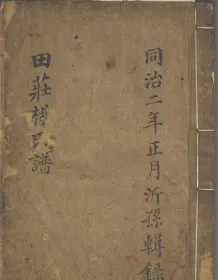 同治二年正月沂孫輯錄
田莊楊氏譜